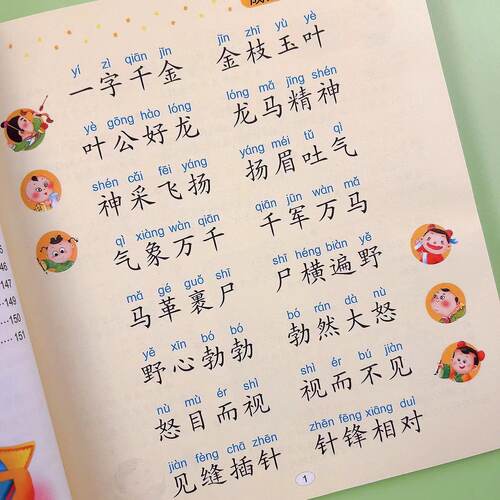 yí zì qiān jīn
一字千金
jīn zhī yù yè
金枝玉叶
yè gōng hào lóng
叶公好龙
lóng mǎ jīng shén
龙马精神
shén cǎi fēi yáng
神采飞扬
yáng méi tǔ qì
扬眉吐气
qì xiàng wàn qiān
气象万千
qiān jūn wàn mǎ
千军万马
mǎ gé guǒ shī
马革裹尸
shī héng biàn yě
尸横遍野
yě xīn bó bó
野心勃勃
bó rán dà nù
勃然大怒
nù mù ér shì
怒目而视
shì ér bú jiàn
视而不见
jiàn fèng chā zhēn
见缝插针
zhēn fēng xiāng duì
针锋相对
1
147
149
150
151